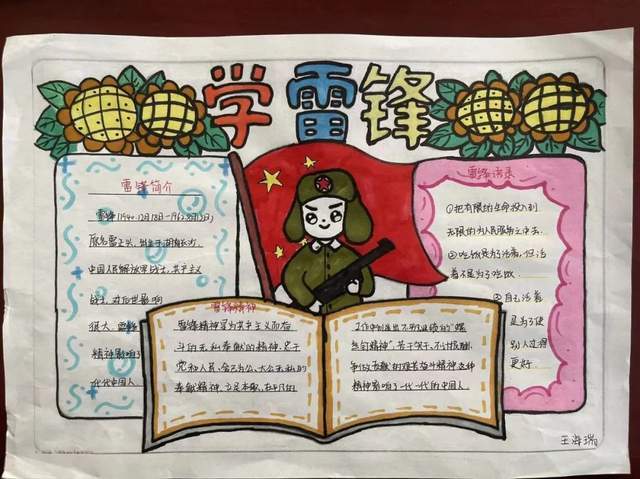 学雷锋
雷锋简介
雷锋(1940.12月18日-1962.8月15日)
原名雷正兴，出生于湖南长沙，
中国人民解放军战士，共产主义
战士，对后世影响
很大，雷锋
精神影响了
代代中国人
雷锋语录
①把有限的生命投入到
无限的为人民服务之中去。
②吃饭是为了活着，但活
着不是为了吃饭。
③自己活着
是为了使
别人过得
更好
雷锋精神
雷锋精神是为共产主义而奋
斗的无私奉献的精神，忠于
党和人民、舍己为公、大公无私的
奉献精神，立足本职、在平凡的
工作中创造出不平凡业绩的“螺
丝钉精神”，苦干实干、不计报酬、
争做贡献的艰苦奋斗精神这种
精神影响了一代一代的中国人。
王海瑞